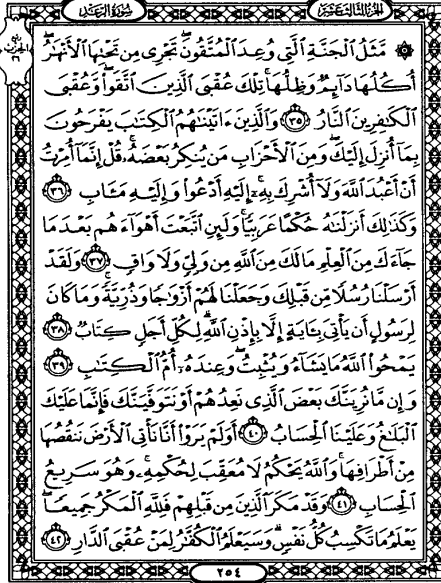 سُورَةُ الرَّعْدِ
الجُزْءُ الثَّالِثَ عَشَرَ
مَّثَلُ الْجَنَّةِ الَّتِي وُعِدَ الْمُتَّقُونَ تَجْرِي مِن تَحْتِهَا الْأَنْهَارُ
أُكُلُهَا دَائِمٌ وَظِلُّهَا تِلْكَ عُقْبَى الَّذِينَ اتَّقَوا وَّعُقْبَى
الْكَافِرِينَ النَّارُ ٣٥ وَالَّذِينَ ءَاتَيْنَاهُمُ الْكِتَابَ يَفْرَحُونَ
بِمَا أُنزِلَ إِلَيْكَ وَمِنَ الْأَحْزَابِ مَن يُنكِرُ بَعْضَهُ قُلْ إِنَّمَا أُمِرْتُ
أَنْ أَعْبُدَ اللَّهَ وَلَا أُشْرِكَ بِهِ إِلَيْهِ أَدْعُوا وَإِلَيْهِ مَئَابِ ٣٦
وَكَذَلِكَ أَنزَلْنَاهُ حُكْمًا عَرَبِيًّا وَلَئِنِ اتَّبَعْتَ أَهْوَاءَهُم بَعْدَمَا
جَاءَكَ مِنَ الْعِلْمِ مَالَكَ مِنَ اللَّهِ مِن وَلِيٍّ وَلَا وَاقٍ ٣٧ وَلَقَدْ
أَرْسَلْنَا رُسُلًا مِّن قَبْلِكَ وَجَعَلْنَا لَهُمْ أَزْوَاجًا وَذُرِّيَّةً وَمَا كَانَ
لِرَسُولٍ أَن يَأْتِيَ بِئَايَةٍ إِلَّا بِإِذْنِ اللَّهِ لِكُلِّ أَجَلٍ كِتَابٌ ٣٨
يَمْحُوا اللَّهُ مَا يَشَاءُ وَيُثْبِتُ وَعِندَهُ أُمُّ الْكِتَابِ ٣٩
وَإِن مَّا نُرِيَنَّكَ بَعْضَ الَّذِي نَعِدُهُمْ أَوْ نَتَوَفَّيَنَّكَ فَإِنَّمَا عَلَيْكَ
الْبَلَاغُ وَعَلَيْنَا الْحِسَابُ ٤٠ أَوَلَمْ يَرَوْا أَنَّا نَأْتِي الْأَرْضَ نَنقُصُهَا
مِنْ أَطْرَافِهَا وَاللَّهُ يَحْكُمُ لَا مُعَقِّبَ لِحُكْمِهِ وَهُوَ سَرِيعُ
الْحِسَابِ ٤١ وَقَدْ مَكَرَ الَّذِينَ مِن قَبْلِهِمْ فَلِلَّهِ الْمَكْرُ جَمِيعًا
يَعْلَمُ مَا تَكْسِبُ كُلُّ نَفْسٍ وَسَيَعْلَمُ الْكُفَّارُ لِمَنْ عُقْبَى الدَّارِ ٤٢
٢٥٤